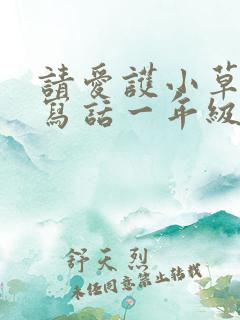 請愛護小草
寫話一年級
舒天烈
未經同意禁止轉載